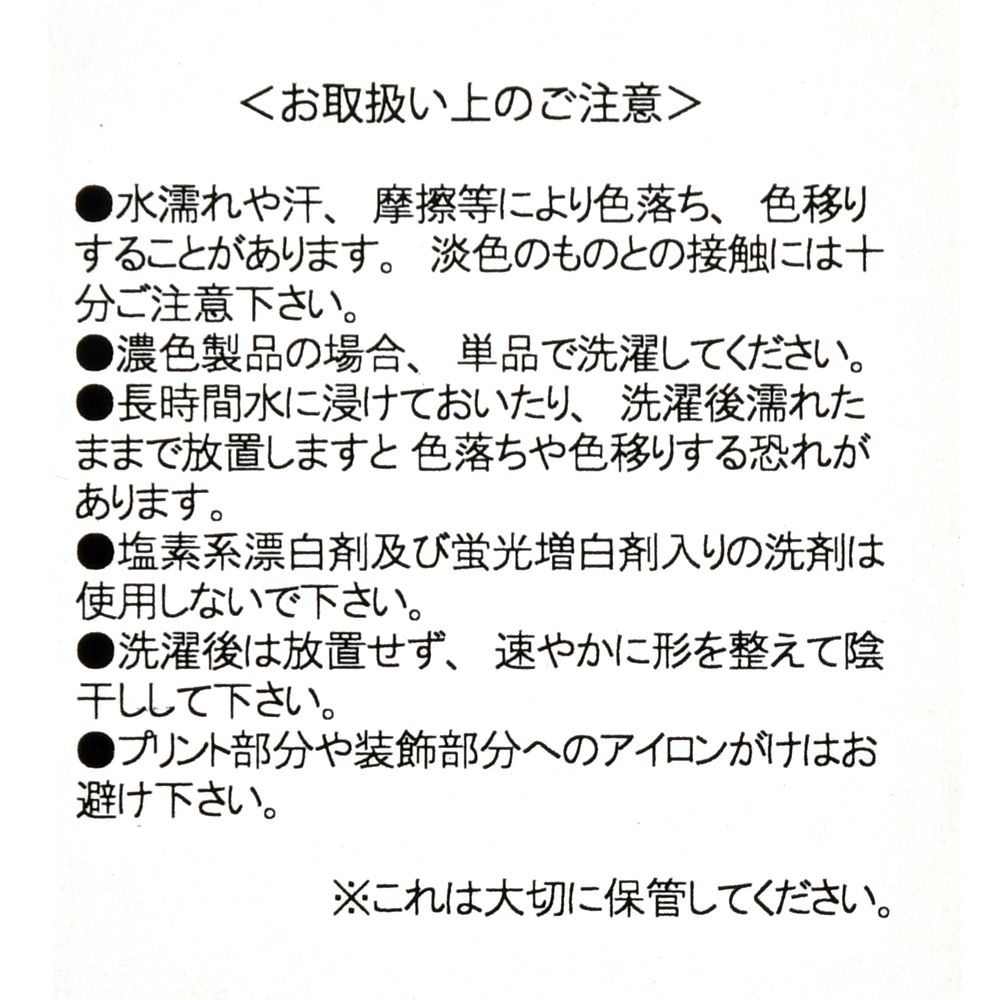 <お取扱い上のご注意>
●水濡れや汗、摩擦等により色落ち、色移り
することがあります。淡色のものとの接触には十
分ご注意下さい。
●濃色製品の場合、単品で洗濯してください。
●長時間水に浸けておいたり、洗濯後濡れた
ままで放置しますと色落ちや色移りする恐れが
あります。
●塩素系漂白剤及び蛍光増白剤入りの洗剤は
使用しないで下さい。
●洗濯後は放置せず、速やかに形を整えて陰
干しして下さい。
●プリント部分や装飾部分へのアイロンがけはお
避け下さい。
※これは大切に保管してください。